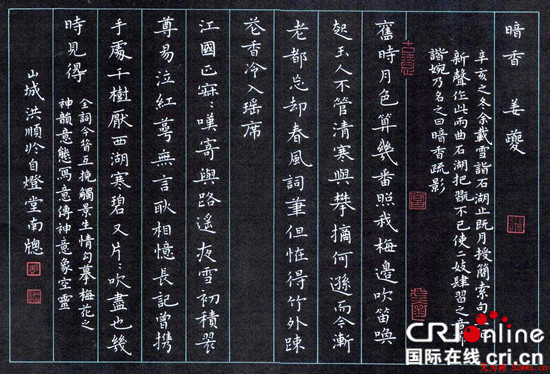 暗香 姜夔
辛亥之冬余載雪詣石湖止既月授簡索句
新聲作此兩曲石湖把翫不已使二妓肄習之音
諧婉乃名之曰暗香疏影
舊時月色算幾番照我梅邊吹笛喚
起玉人不管清寒與攀摘何遜而今漸
老都忘却春風詞筆但怪得竹外疎
花香冷入瑤席
江國正寂〻嘆寄與路遙夜雪初積翠
尊易泣紅萼無言耿相憶長記曾携
手處千樹壓西湖寒碧又片〻吹盡也幾
時見得
全詞今昔互挽觸景生情句摹梅花之
神韻意態寫意傳神意象空靈
山城洪順於自燈堂南牕
CRI online
国际在线 cri.cn